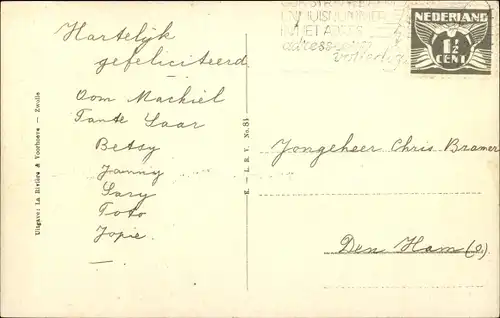 Hartelijk
gefeliciteerd
Oom Machiel
Tante Saar
Betsy
Janny
Sary
Toto
Jopie.
Uitgave: La Rivière & Voorhoeve – Zwolle
E. – L. R. V. No. 84
EN HUISNUMMER
IN HET ADRES
NEDERLAND
1½
CENT
Jongeheer Chris Bramer
Den Ham (O.)